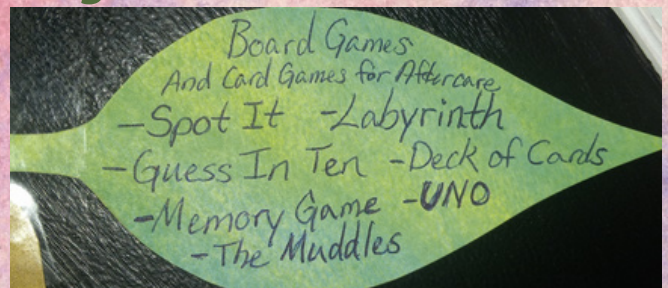 Board Games
And Card Games for Aftercare
-Spot It -Labyrinth
-Guess In Ten -Deck of Cards
-Memory Game -UNO
-The Muddles